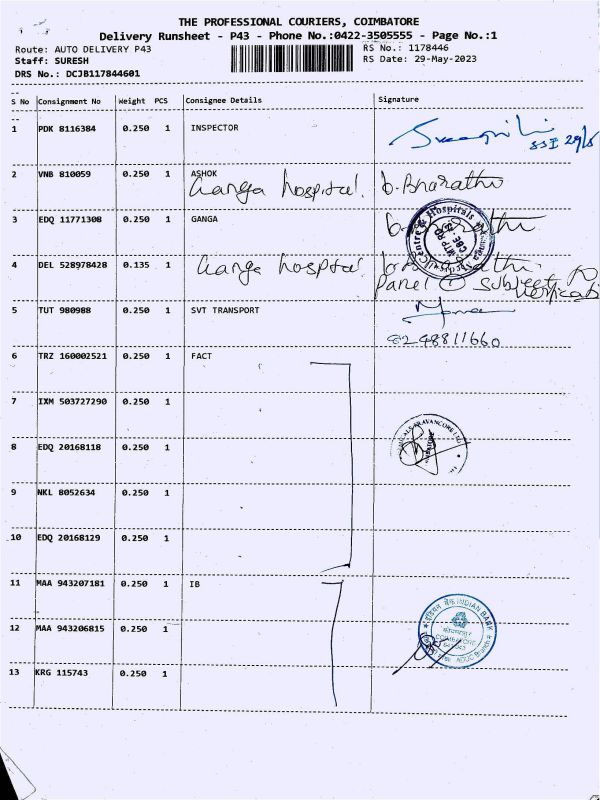 THE PROFESSIONAL COURIERS, COIMBATORE
Delivery Runsheet - P43 - Phone No.:0422-3505555 - Page No.:1
Route: AUTO DELIVERY P43
RS No.: 1178446
Staff: SURESH
RS Date: 29-May-2023
DRS No.: DCJB117844601
S No Consignment No Weight PCS Consignee Details Signature
1 PDK 8116384 0.250 1 INSPECTOR
SSI 29/5
2 VNB 810059 0.250 1 ASHOK
Ganga hospital. b. Bharathi
3 EDQ 11771308 0.250 1 GANGA
4 DEL 528978428 0.135 1 Ganga hospital
Panel Subject to
5 TUT 980988 0.250 1 SVT TRANSPORT
8248811660
6 TRZ 160002521 0.250 1 FACT
7 IXM 503727290 0.250 1
8 EDQ 20168118 0.250 1
9 NKL 8052634 0.250 1
10 EDQ 20168129 0.250 1
11 MAA 943207181 0.250 1 IB
INDIAN BANK
12 MAA 943206815 0.250 1
COIMBATORE
13 KRG 115743 0.250 1